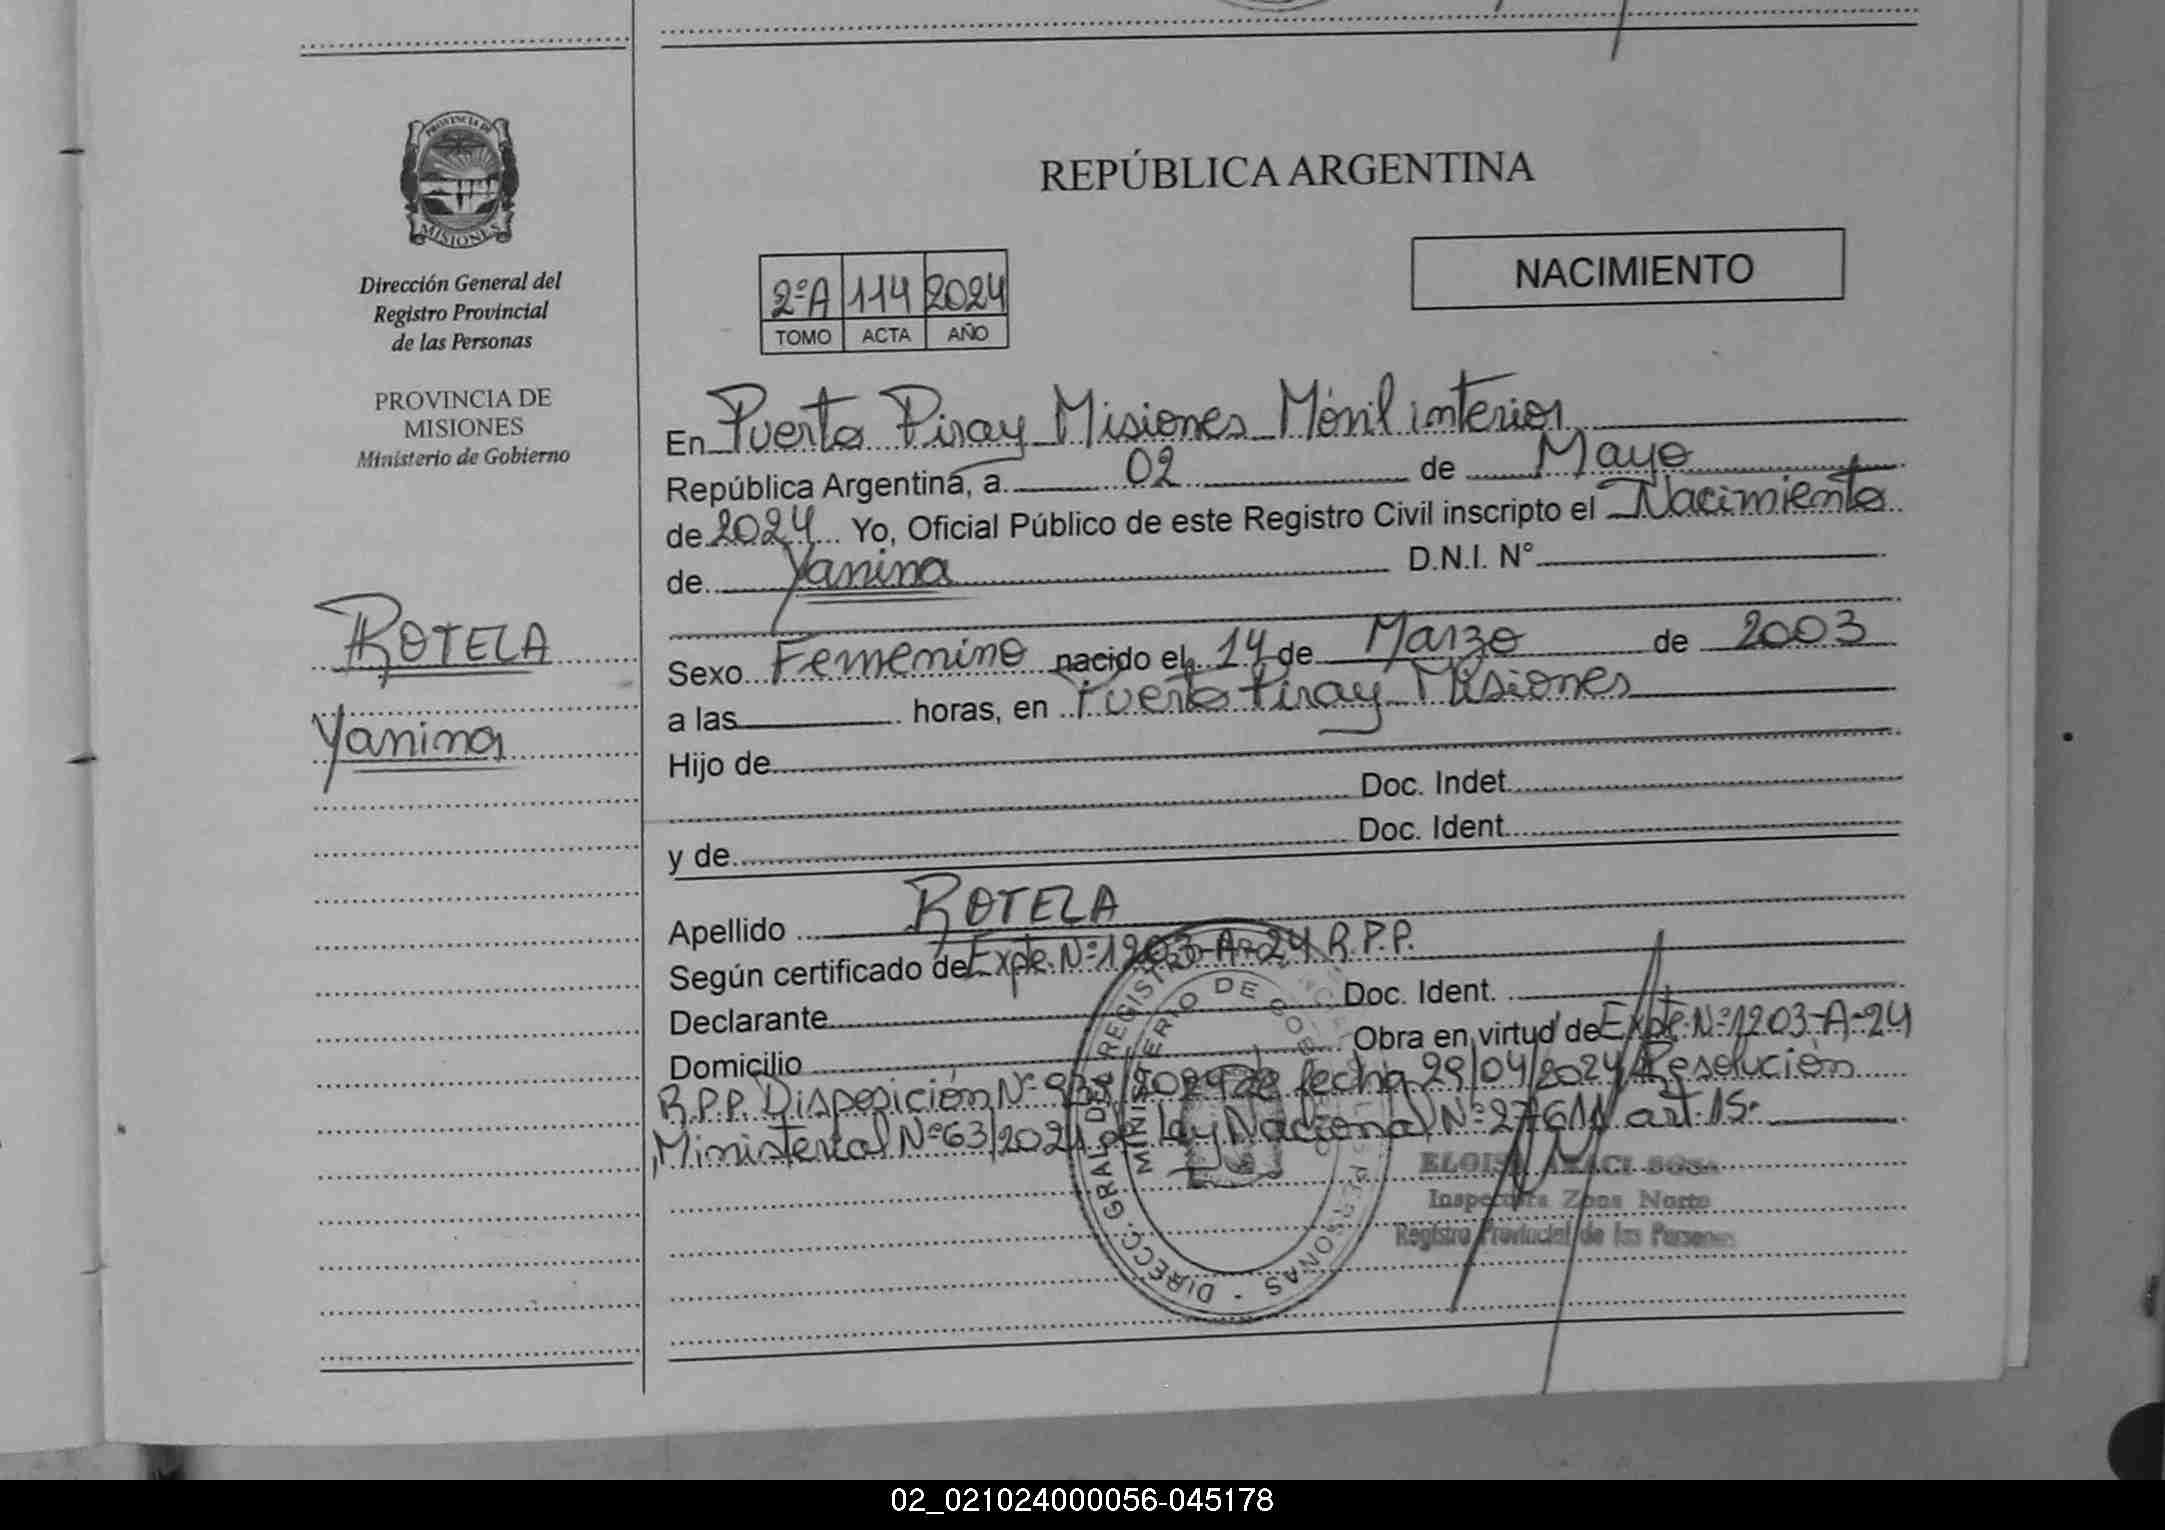 PROVINCIA DE
MISIONES
Dirección General del
Registro Provincial
de las Personas
PROVINCIA DE
MISIONES
Ministerio de Gobierno
ROTELA
Yanina
REPÚBLICA ARGENTINA
NACIMIENTO
2ºA 114 2024
TOMO ACTA AÑO
En Puerto Piray Misiones Móvil interior
República Argentina, a 02 de Mayo
de 2024 Yo, Oficial Público de este Registro Civil inscripto el Nacimiento
de Yanina D.N.I. N°
Sexo Femenino nacido el 14 de Marzo de 2003
a las horas, en Puerto Piray Misiones
Hijo de
Doc. Indet.
y de Doc. Ident.
Apellido ROTELA
Según certificado de Expte. Nº 1203-A-24 R.P.P.
Declarante Doc. Ident.
Domicilio Obra en virtud de Expte. Nº 1203-A-24
R.P.P. Disposición Nº /2024 de fecha 29/04/2024 Resolución
Ministerial Nº 63/2024 de Ley Nacional Nº 27611 art. 15.
DIRECC. GRAL DEL REGISTRO PERSONAS
MINISTERIO DE GOBIERNO
ELOISA ARACI SOSA
Inspectora Zona Norte
Registro Provincial de las Personas
02_021024000056-045178